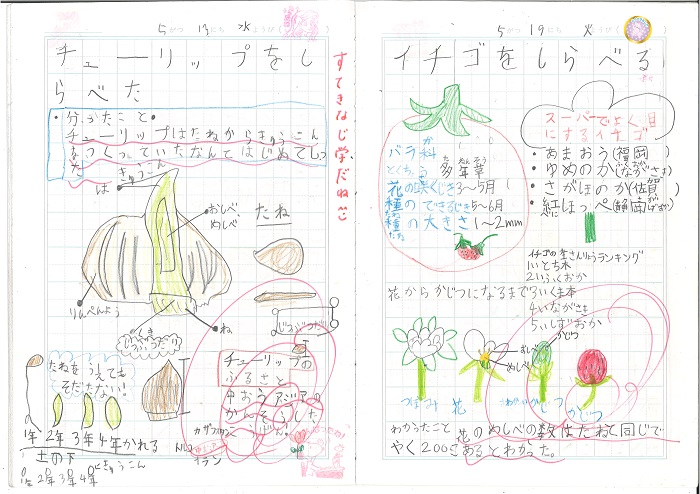 5がつ 13にち 水ようび( )
チューリップをし
らべた
・分かったこと・
チューリップはたねからきゅうこん
をつくっていたなんてはじめてしっ
た
すてきなじ学だね
きゅうこん
は
おしべ、
めしべ
たね
りんぺんよう
くき
ね
たねをうえても
そだたない!
1年 2年 3年 4年かれる
土の下
1年 2年 3年 4年
きゅうこん
チューリップの
ふるさと
中おうアジアの
かんそうした
カザフスタン
トルコ
イラン
5がつ 19にち 火ようび( )
イチゴをしらべる
バラ科
か
とくちょう
多年草
た ねん そう
花の咲くじき3〜5月
種のできるじき5〜6月
種の大きさ1〜2mm
たね
スーパーでよく目
にするイチゴ
・あまおう(福岡)
ふくおか
・ゆめのか(ながさき)
・さがほのか(佐賀)
・紅ほっぺ(静岡)
イチゴの生さんりょうランキング
1いとち木
2いふくおか
3いくま本
4いながさき
5いしずおか
花からかじつになるまで
おしべ
めしべ
かじつ
つぼみ
花
かじつ
わかったこと
花のめしべの数はたねと同じで
やく200こあるとわかった。